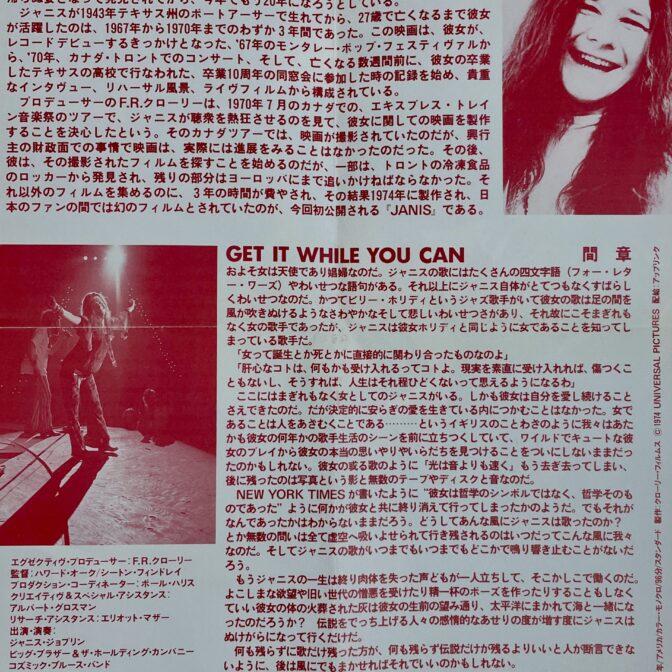 ジャニスが1943年テキサス州のポートアーサーで生れてから、27歳で亡くなるまで彼女
が活躍したのは、1967年から1970年までのわずか3年間であった。この映画は、彼女が、
レコードデビューするきっかけとなった、'67年のモンタレー・ポップ・フェスティヴァルか
ら、'70年、カナダ・トロントでのコンサート、そして、亡くなる数週間前に、彼女の卒業
したテキサスの高校で行なわれた、卒業10周年の同窓会に参加した時の記録を始め、貴重
なインタヴュー、リハーサル風景、ライヴフィルムから構成されている。
プロデューサーのF.R.クローリーは、1970年7月のカナダでの、エキスプレス・トレイ
ン音楽祭のツアーで、ジャニスが聴衆を熱狂させるのを見て、彼女に関しての映画を製作
することを決心したという。そのカナダツアーでは、映画が撮影されていたのだが、興行
主の財政面での事情で映画は、実際には進展をみることはなかったのだった。その後、
彼は、その撮影されたフィルムを探すことを始めるのだが、一部は、トロントの冷凍食品
のロッカーから発見され、残りの部分はヨーロッパにまで追いかけねばならなかった。そ
れ以外のフィルムを集めるのに、3年の時間が費やされ、その結果1974年に製作され、日
本のファンの間では幻のフィルムとされていたのが、今回初公開される『JANIS』である。
GET IT WHILE YOU CAN 間 章
およそ女は天使であり娼婦なのだ。ジャニスの歌にはたくさんの四文字語（フォー・レタ
ー・ワーズ）やわいせつな語句がある。それ以上にジャニス自体がとてつもなくすばらし
くわいせつなのだ。かつてビリー・ホリディというジャズ歌手がいて彼女の歌は足の間を
風が吹きぬけるようなさわやかなそして悲しいわいせつさがあり、それ故にこそまぎれも
なく女の歌手であったが、ジャニスは彼女ホリディと同じように女であることを知ってし
まっている歌手だ。
「女って誕生とか死とかに直接的に関わり合ったものなのよ」
「肝心なコトは、何もかも受け入れるってコトよ。現実を素直に受け入れれば、傷つくこ
ともないし、そうすれば、人生はそれ程ひどくないって思えるようになるわ」
ここにはまぎれもなく女としてのジャニスがいる。しかも彼女は自分を愛し続けること
さえできたのだ。だが決定的に安らぎの愛を生きている内につかむことはなかった。女で
あることは人をあざむくことである………というイギリスのことわざのように我々はあた
かも彼女の何年かの歌手生活のシーンを前に立ちつくしていて、ワイルドでキュートな彼
女のプレイから彼女の本当の思いやりやいらだちを見つけることをついにしないままだっ
たのかもしれない。彼女の或る歌のように「光は音よりも速く」もう去ぎ去ってしまい、
後に残ったのは写真という影と無数のテープやディスクと音なのだ。
NEW YORK TIMESが書いたように"彼女は哲学のシンボルではなく、哲学そのも
のであった"ように何かが彼女と共に終り消えて行ってしまったかのようだ。でもそれが
なんであったかはわからないままだろう。どうしてあんな風にジャニスは歌ったのか？
とか無数の問いは全て虚空へ吸いよせられて行き残されるのはいつだってこんな風に我々
なのだ。そしてジャニスの歌がいつまでもいつまでもどこかで鳴り響き止むことがないだ
ろう。
もうジャニスの一生は終り肉体を失った声どもが一人立ちして、そこかしこで働くのだ。
よこしまな欲望や旧い世代の憎悪を受けたり精一杯のポーズを作ったりすることもしなく
ていい彼女の体の火葬された灰は彼女の生前の望み通り、太平洋にまかれて海と一緒にな
ったのだろうか？ 伝説をでっち上げる人々の感情的なあせりの度が増す度にジャニスは
ぬけがらになって行くだけだ。
何も残らずに歌だけ残った方が、何も残らず伝説だけが残るよりいいと人が断言できな
いように、後は風にでもまかせればそれでいいのかもしれない。
エグゼクティヴ・プロデューサー：F.R.クローリー
監督：ハワード・オーク/シートン・フィンドレイ
プロダクション・コーディネーター：ポール・ハリス
クリエイティヴ＆スペシャル・アシスタンス：
アルバート・グロスマン
リサーチ・アシスタンス：エリオット・マザー
出演・演奏：
ジャニス・ジョプリン
ビッグ・ブラザー＆ザ・ホールディング・カンパニー
コズミック・ブルース・バンド
アメリカ/カラー・モノクロ/96分/スタンダード 製作：クローリー・フィルムズ © 1974 UNIVERSAL PICTURES 配給：アップリンク